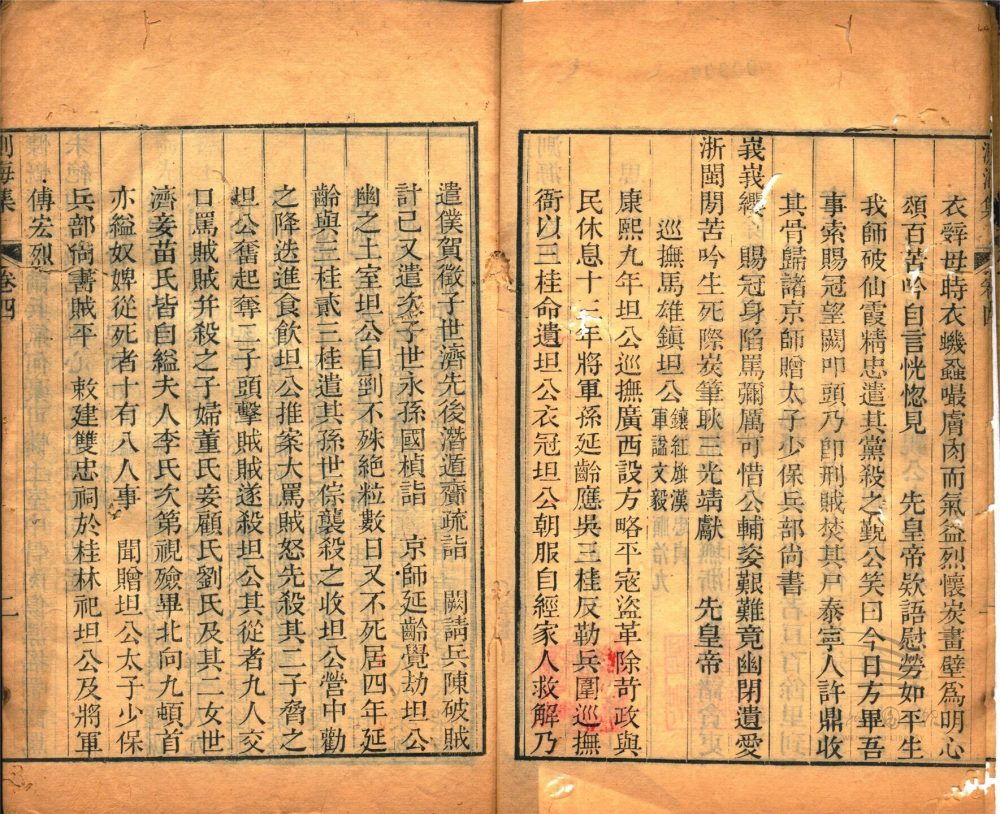 衣辭母時衣蟣蝨嘬膚肉而氣益烈懷炭畫壁爲明心
頌百苦吟自言恍惚見 先皇帝欵語慰勞如平生
我師破仙霞精忠遣其黨殺之覲公笑曰今日方畢吾
事索賜冠望闕叩頭乃卽刑賊焚其尸泰寧人許鼎收
其骨歸諸京師贈太子少保兵部尚書
峩峩纓 賜冠身陷罵彌厲可惜公輔姿艱難竟幽閉遺愛
浙閩閒苦吟生死際炭筆耿三光靖獻 先皇帝
巡撫馬雄鎭坦公鑲紅旗漢軍諡文毅
康熙九年坦公巡撫廣西設方略平寇盜革除苛政與
民休息十二年將軍孫延齡應吳三桂反勒兵圍巡撫
衙以三桂命遺坦公衣冠坦公朝服自經家人救解乃
遣僕賀徵子世濟先後潛遁齎疏詣 闕請兵陳破賊
計已又遣次子世永孫國楨詣 京師延齡覺劫坦公
幽之土室坦公自剄不殊絶粒數日又不死居四年延
齡與三桂貳三桂遣其孫世倧襲殺之收坦公營中勸
之降迭進食飲坦公推案大罵賊怒先殺其二子脅之
坦公奮起奪二子頭擊賊賊遂殺坦公其從者九人交
口罵賊賊并殺之子婦董氏妾顧氏劉氏及其二女世
濟妾苗氏皆自縊夫人李氏次第視殮畢北向九頓首
亦縊奴婢從死者十有八人事 聞贈坦公太子少保
兵部尚書賊平 敕建雙忠祠於桂林祀坦公及將軍
傅宏烈
測海集 卷四 二